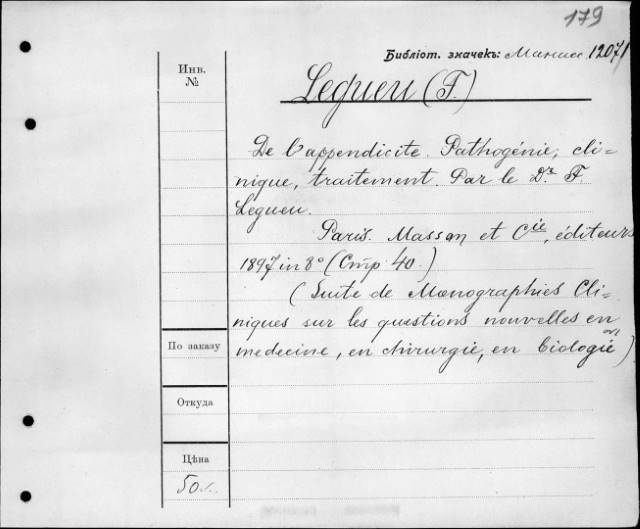 179
Библіот. значекъ: 12071
Инв.
№
Legueu (F.)
De l'appendicite. Pathogénie, cli=
nique, traitement. Par le Dr. F.
Legueu.
Paris. Masson et Cie, éditeurs
1897 in 8° (Стр 40.)
(Suite de Monographies Cli=
niques sur les questions nouvelles en
medecine, en chirurgie, en biologie)
По заказу
Откуда
Цѣна
50